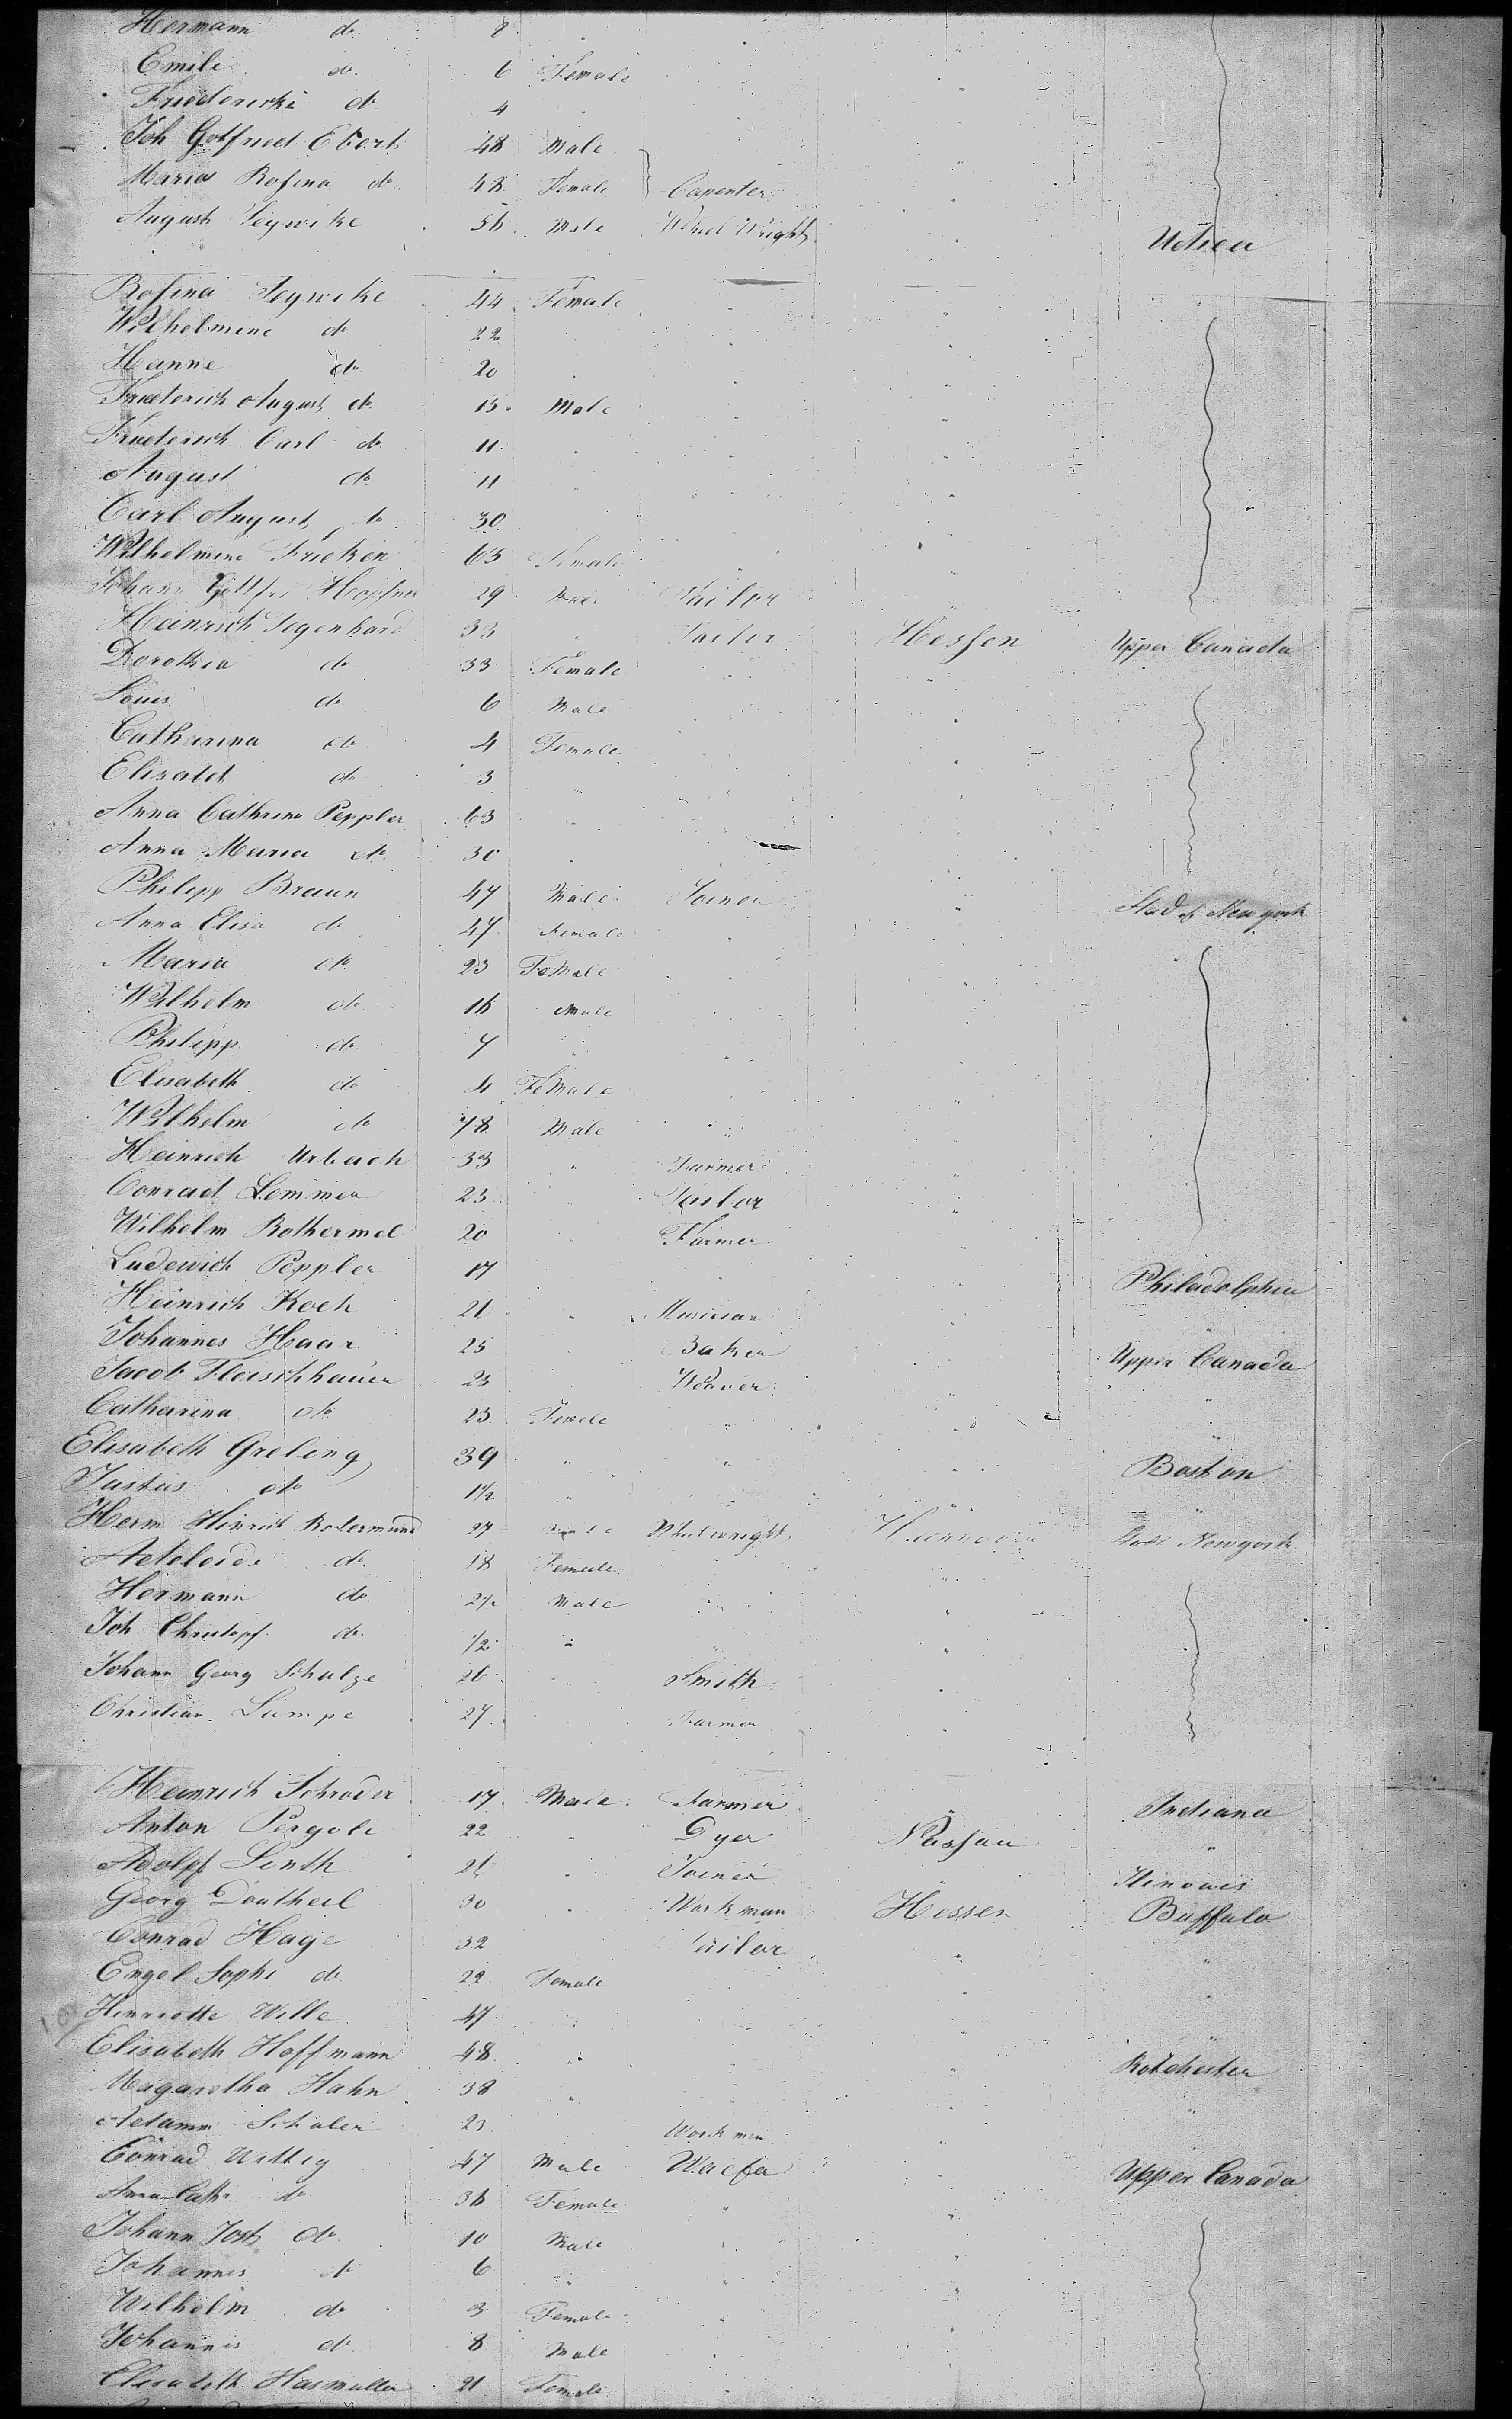 Hermann do 8
Emile do 6 Female
Friedericke do 4
Joh Gotfried Ebert 48 Male
Maria Rosina do 48 Female Capenter
August Seywike 56 Male Wheel Wright Uetica
Rosina Seywike 44 Female
Wilhelmine do 22
Hanne do 20
Friederich August do 15 Male
Friederich Carl do 11
August do 11
Carl August do 30
Wilhelmine Fricken 63 Female
Johann Gottfr Hopfner 29 Male Tailor
Heinrich Segenhard 33 " Tailor Hessen Upper Canada
Dorothea do 33 Female "
Louis do 6 Male "
Catharina do 4 Female "
Elisabet do 3 "
Anna Cathrina Peppler 63
Anna Maria do 30
Philipp Braun 47 Male Joiner " Stad of New york
Anna Elisa do 47 Female "
Maria do 23 Female
Wilhelm do 16 Male
Philipp do 7 "
Elisabeth do 4 Female
Wilhelm do 78 Male "
Heinrich Urbach 33 " Farmer "
Conrad Lemmer 23 " Tailor "
Wilhelm Rothermel 20 " Farmer "
Ludewich Peppler 17 Philadelphia
Heinrich Koch 21 " Musician "
Johannes Haar 25 " Baker Upper Canada
Jacob Fleischhauer 23 " Weaver "
Catharina do 23 Female " "
Elisabeth Greling 39 " " " Boston
Justus do 1½ " " "
Herm Hinrich Rodermund 27 Male Wheelwright Hannover Stad Newyork
Adeleide do 18 Female "
Hermann do 2½ Male "
Joh Christopf do ½ " " "
Johann Georg Schulze 26 " Smith "
Christian Lampe 27 " Farmer
Heinrich Schroder 17 Male Farmer " Indiana
Anton Pergole 22 " Dyer Nassau "
Adolpf Senth 21 " Joiner Ilinouis
Georg Dautheil 30 " Workman Hessen Buffalo
Conrad Hage 32 Tailor " "
Engel Sophi do 22 Female "
Henriette Wille 47 " "
Elisabeth Hoffmann 48 " " Rotchester
Magaretha Hahn 38 " "
Adamm Schaler 23 Workmen "
Conrad Wittig 47 Male " Upper Canada
Anna Cath do 36 Female "
Johann Jost do 10 Male
Johannes do 6 " "
Wilhelm do 3 Female "
Johannis do 8 Male
Elisabeth Hasmuller 21 Female